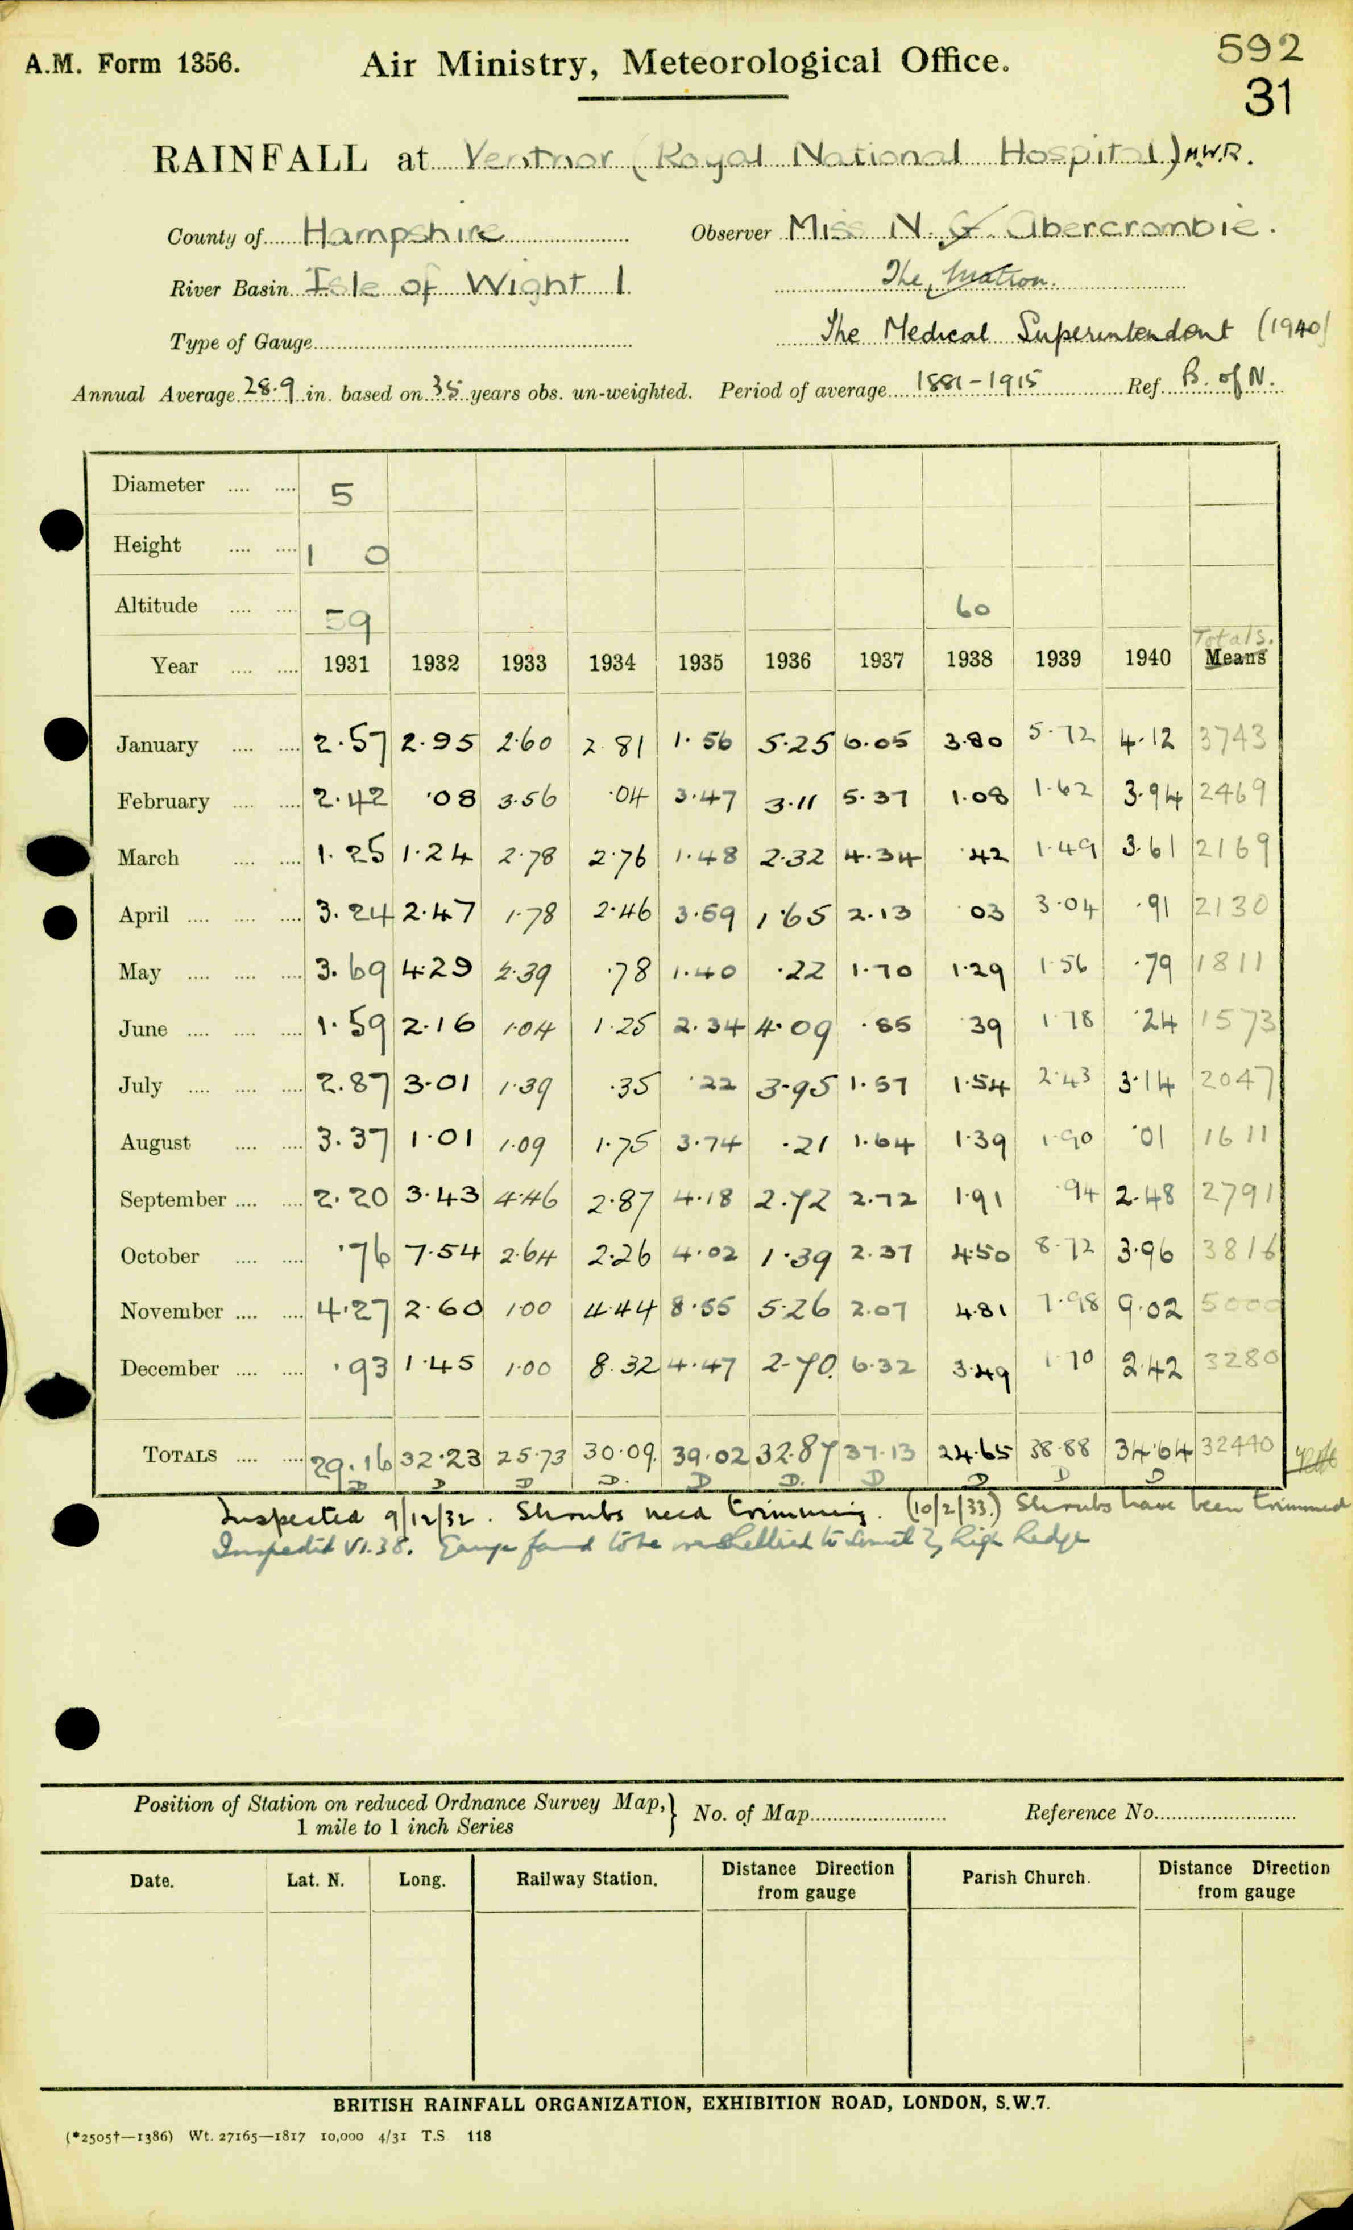 A.M. Form 1356.
Air Ministry, Meteorological Office.
592
31
RAINFALL at Ventnor (Royal National Hospital) M.W.R.
County of Hampshire Observer Miss N. G. Abercrombie.
River Basin Isle of Wight 1 The Matron.
Type of Gauge The Medical Superintendent (1940)
Annual Average 28.9 in. based on 35 years obs. un-weighted. Period of average 1881-1915 Ref. B. of N.
Diameter 5
Height 1 0
Altitude 59 60
Totals.
Year 1931 1932 1933 1934 1935 1936 1937 1938 1939 1940 Means
January 2.57 2.95 2.60 2.81 1.56 5.25 6.05 3.80 5.72 4.12 3743
February 2.42 .08 3.56 .04 3.47 3.11 5.37 1.08 1.62 3.94 2469
March 1.25 1.24 2.78 2.76 1.48 2.32 4.34 .42 1.49 3.61 2169
April 3.24 2.47 1.78 2.46 3.59 1.65 2.13 .03 3.04 .91 2130
May 3.69 4.29 2.39 .78 1.40 .22 1.70 1.29 1.56 .79 1811
June 1.59 2.16 1.04 1.25 2.34 4.09 .85 .39 1.78 .24 1573
July 2.87 3.01 1.39 .35 .22 3.95 1.57 1.54 2.43 3.14 2047
August 3.37 1.01 1.09 1.75 3.74 .21 1.64 1.39 1.90 .01 1611
September 2.20 3.43 4.46 2.87 4.18 2.72 2.72 1.91 .94 2.48 2791
October .76 7.54 2.64 2.26 4.02 1.39 2.37 4.50 8.72 3.96 3816
November 4.27 2.60 1.00 4.44 8.55 5.26 2.07 4.81 7.98 9.02 5000
December .93 1.45 1.00 8.32 4.47 2.70 6.32 3.49 1.70 2.42 3280
TOTALS 29.16 32.23 25.73 30.09 39.02 32.87 37.13 24.65 38.88 34.64 32440
D D D D. D D. D D D D
Inspected 9/12/32. Shrubs need trimming. (10/2/33.) Shrubs have been trimmed
Inspected VI.38. Gauge found to be by high hedge
Position of Station on reduced Ordnance Survey Map, 1 mile to 1 inch Series } No. of Map Reference No.
Date. Lat. N. Long. Railway Station. Distance Direction from gauge Parish Church. Distance Direction from gauge
BRITISH RAINFALL ORGANIZATION, EXHIBITION ROAD, LONDON, S.W.7.
(*2505†—1386) Wt. 27165—1817 10,000 4/31 T.S 118